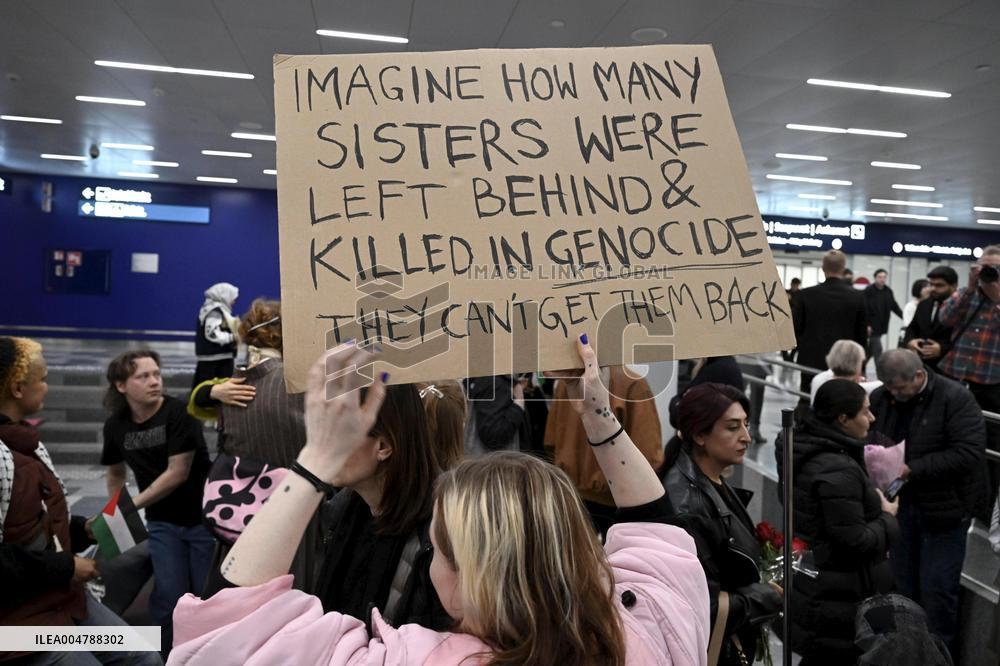 IMAGINE HOW MANY
SISTERS WERE
LEFT BEHIND &
KILLED IN GENOCIDE
THEY CAN'T GET THEM BACK
IMAGE LINK GLOBAL
ILG
ILEA004788302